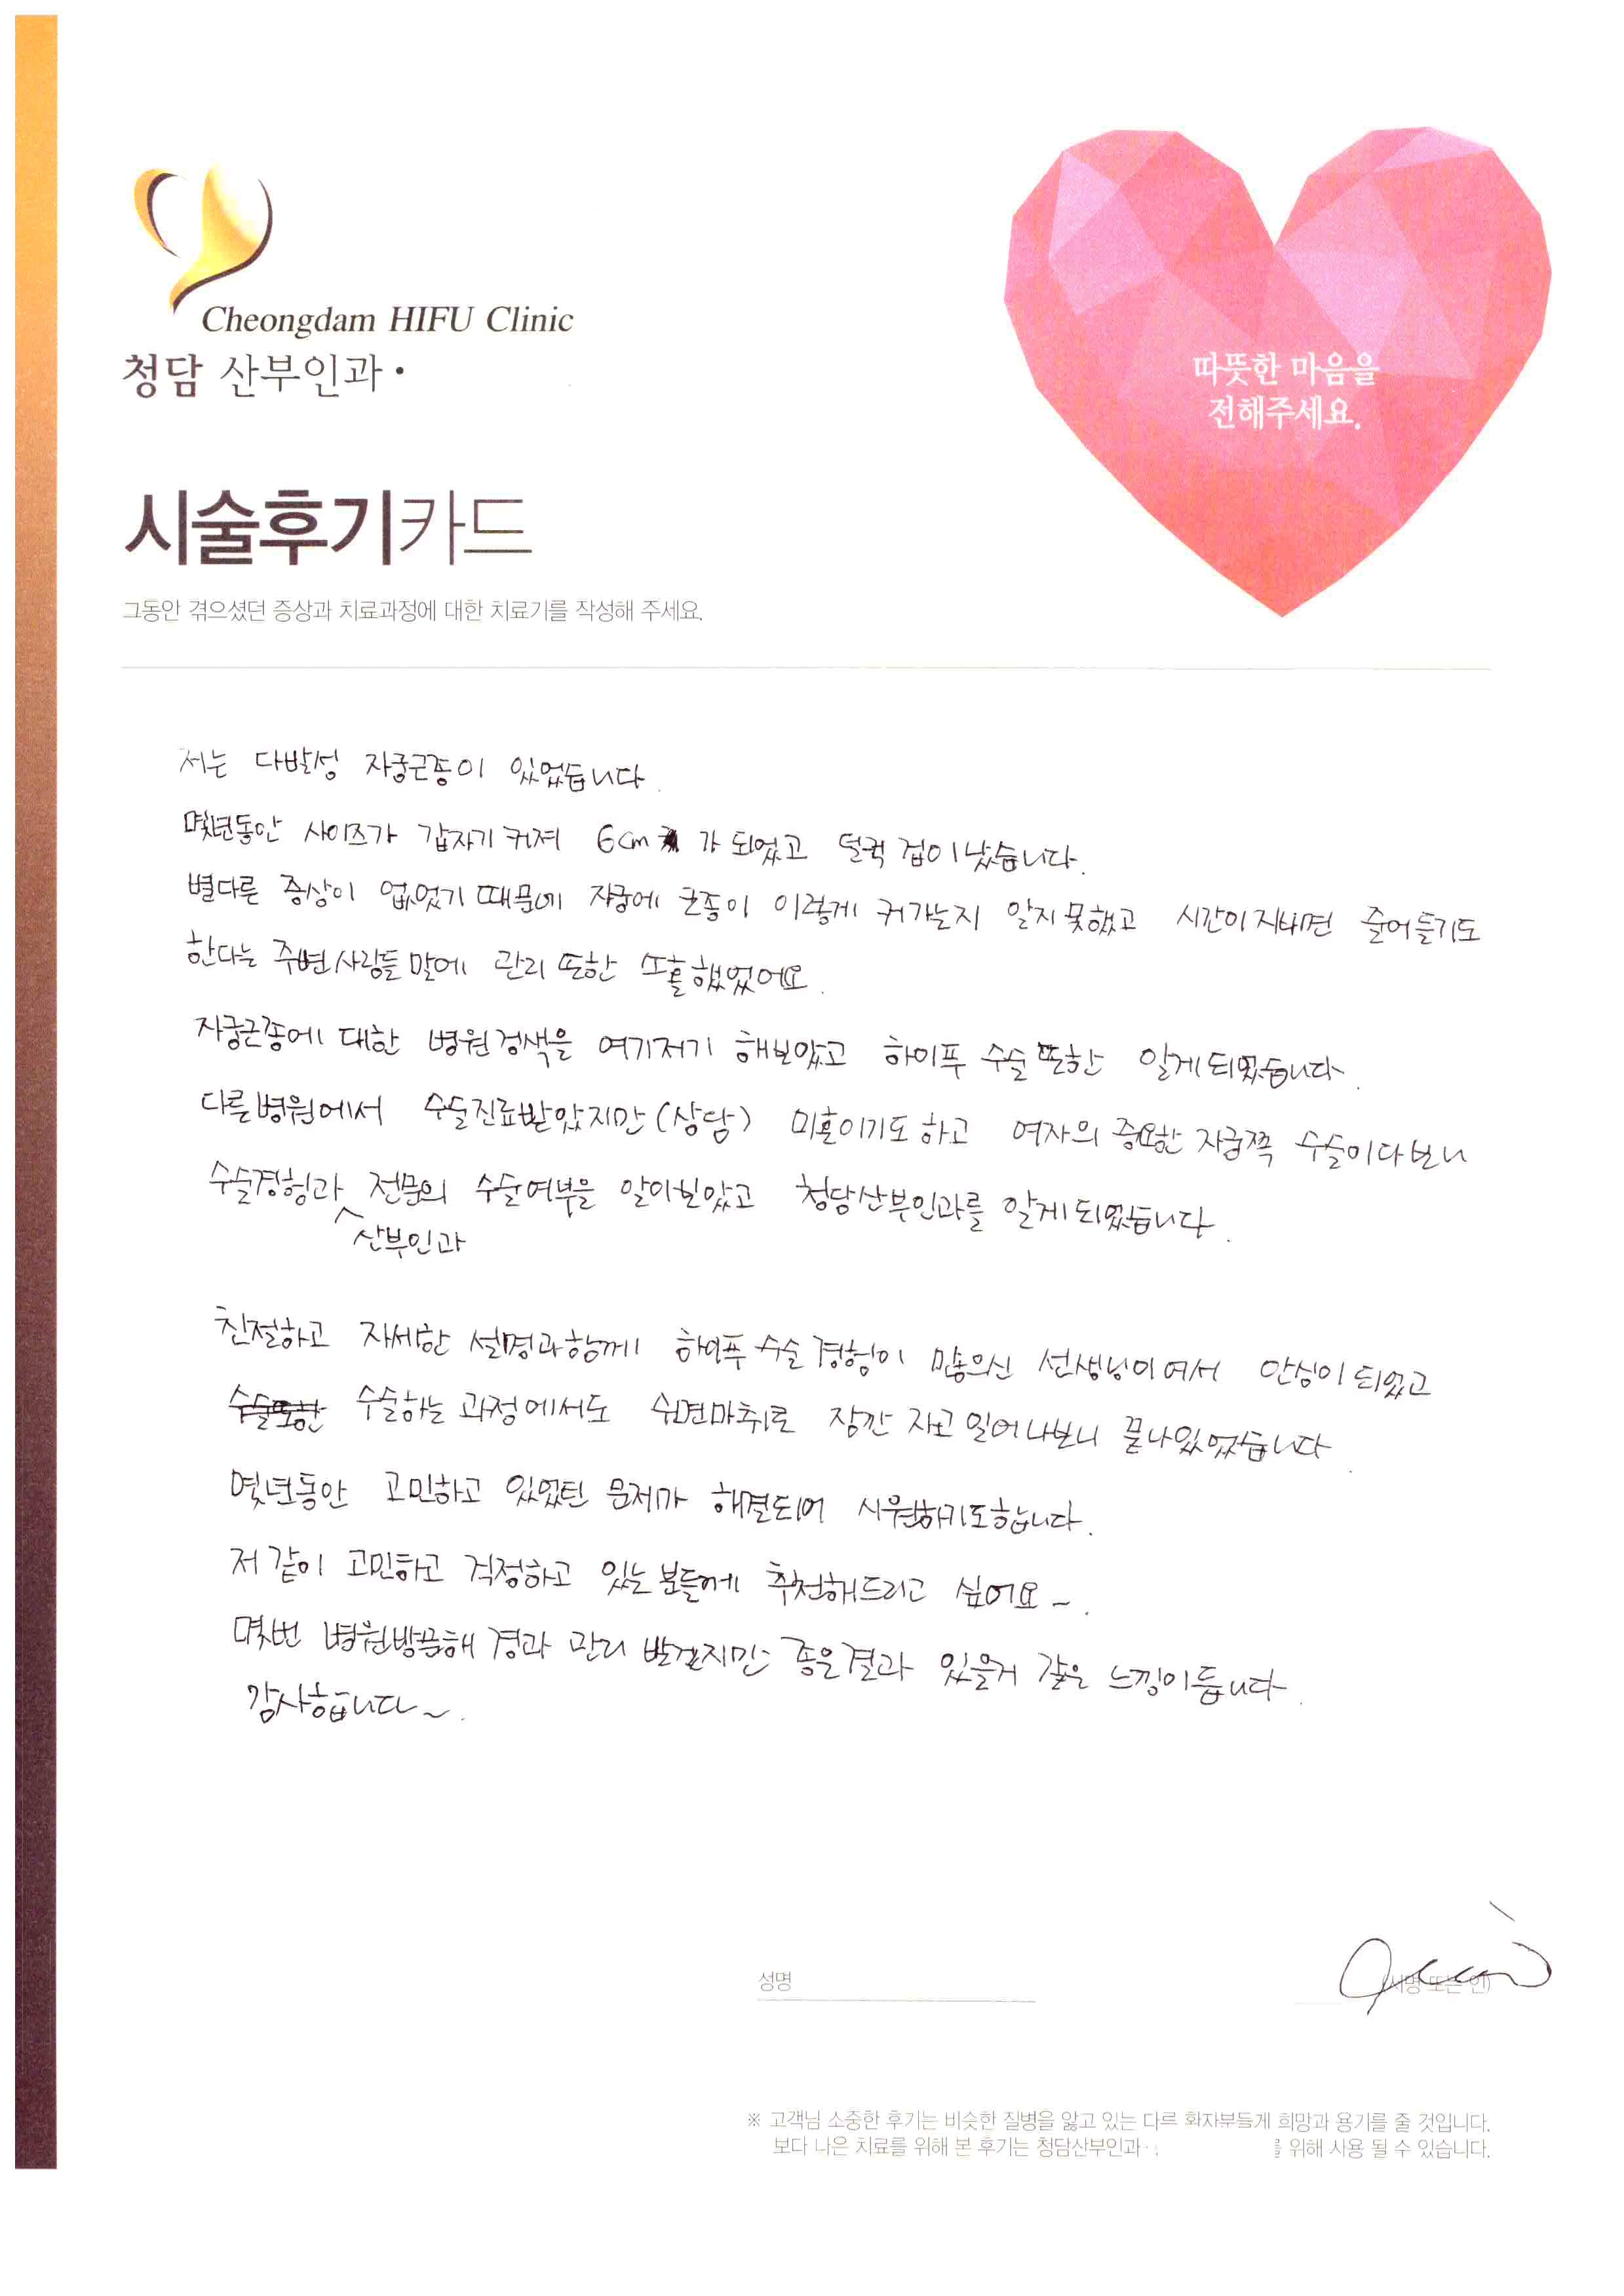 Cheongdam HIFU Clinic
청담 산부인과·
따뜻한 마음을
전해주세요.
시술후기카드
그동안 겪으셨던 증상과 치료과정에 대한 치료기를 작성해 주세요.
저는 다발성 자궁근종이 있었습니다.
몇년동안 사이즈가 갑자기 커져 6cm 가 되었고 덜컥 겁이났습니다.
별다른 증상이 없었기 때문에 자궁에 근종이 이렇게 커가는지 알지 못했고 시간이 지나면 줄어들기도
한다는 주변사람들 말에 관리 또한 소홀했었어요.
자궁근종에 대한 병원검색을 여기저기 해보았고 하이푸 수술 또한 알게되었습니다.
다른병원에서 수술진료받았지만(상담) 미혼이기도 하고 여자의 중요한 자궁쪽 수술이다보니
수술경험과 산부인과 전문의 수술여부을 알아보았고 청담산부인과를 알게되었습니다.
친절하고 자세한 설명과함께 하이푸 수술 경험이 많으신 선생님이여서 안심이 되었고
수술또한 수술하는 과정에서도 수면마취로 잠깐 자고 일어나보니 끝나있었습니다.
몇년동안 고민하고 있었던 문제가 해결되어 시원하기도합니다.
저 같이 고민하고 걱정하고 있는 분들께 추천해드리고 싶어요~.
몇번 병원방문해 경과 관리 받겠지만 좋은결과 있을거 같은 느낌이듭니다.
감사합니다~.
성명
(서명 또는 인)
※ 고객님 소중한 후기는 비슷한 질병을 앓고 있는 다른 환자분들게 희망과 용기를 줄 것입니다.
보다 나은 치료를 위해 본 후기는 청담산부인과· 를 위해 사용 될 수 있습니다.